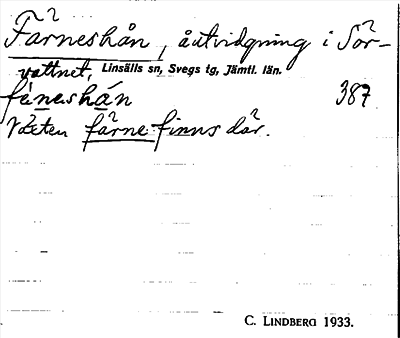 Färneshån, åutvidgning i Sör-
vattnet, Linsälls sn, Svegs tg, Jämtl. län.
fèneshán 387
Växten färne finns där.
C. LINDBERG 1933.